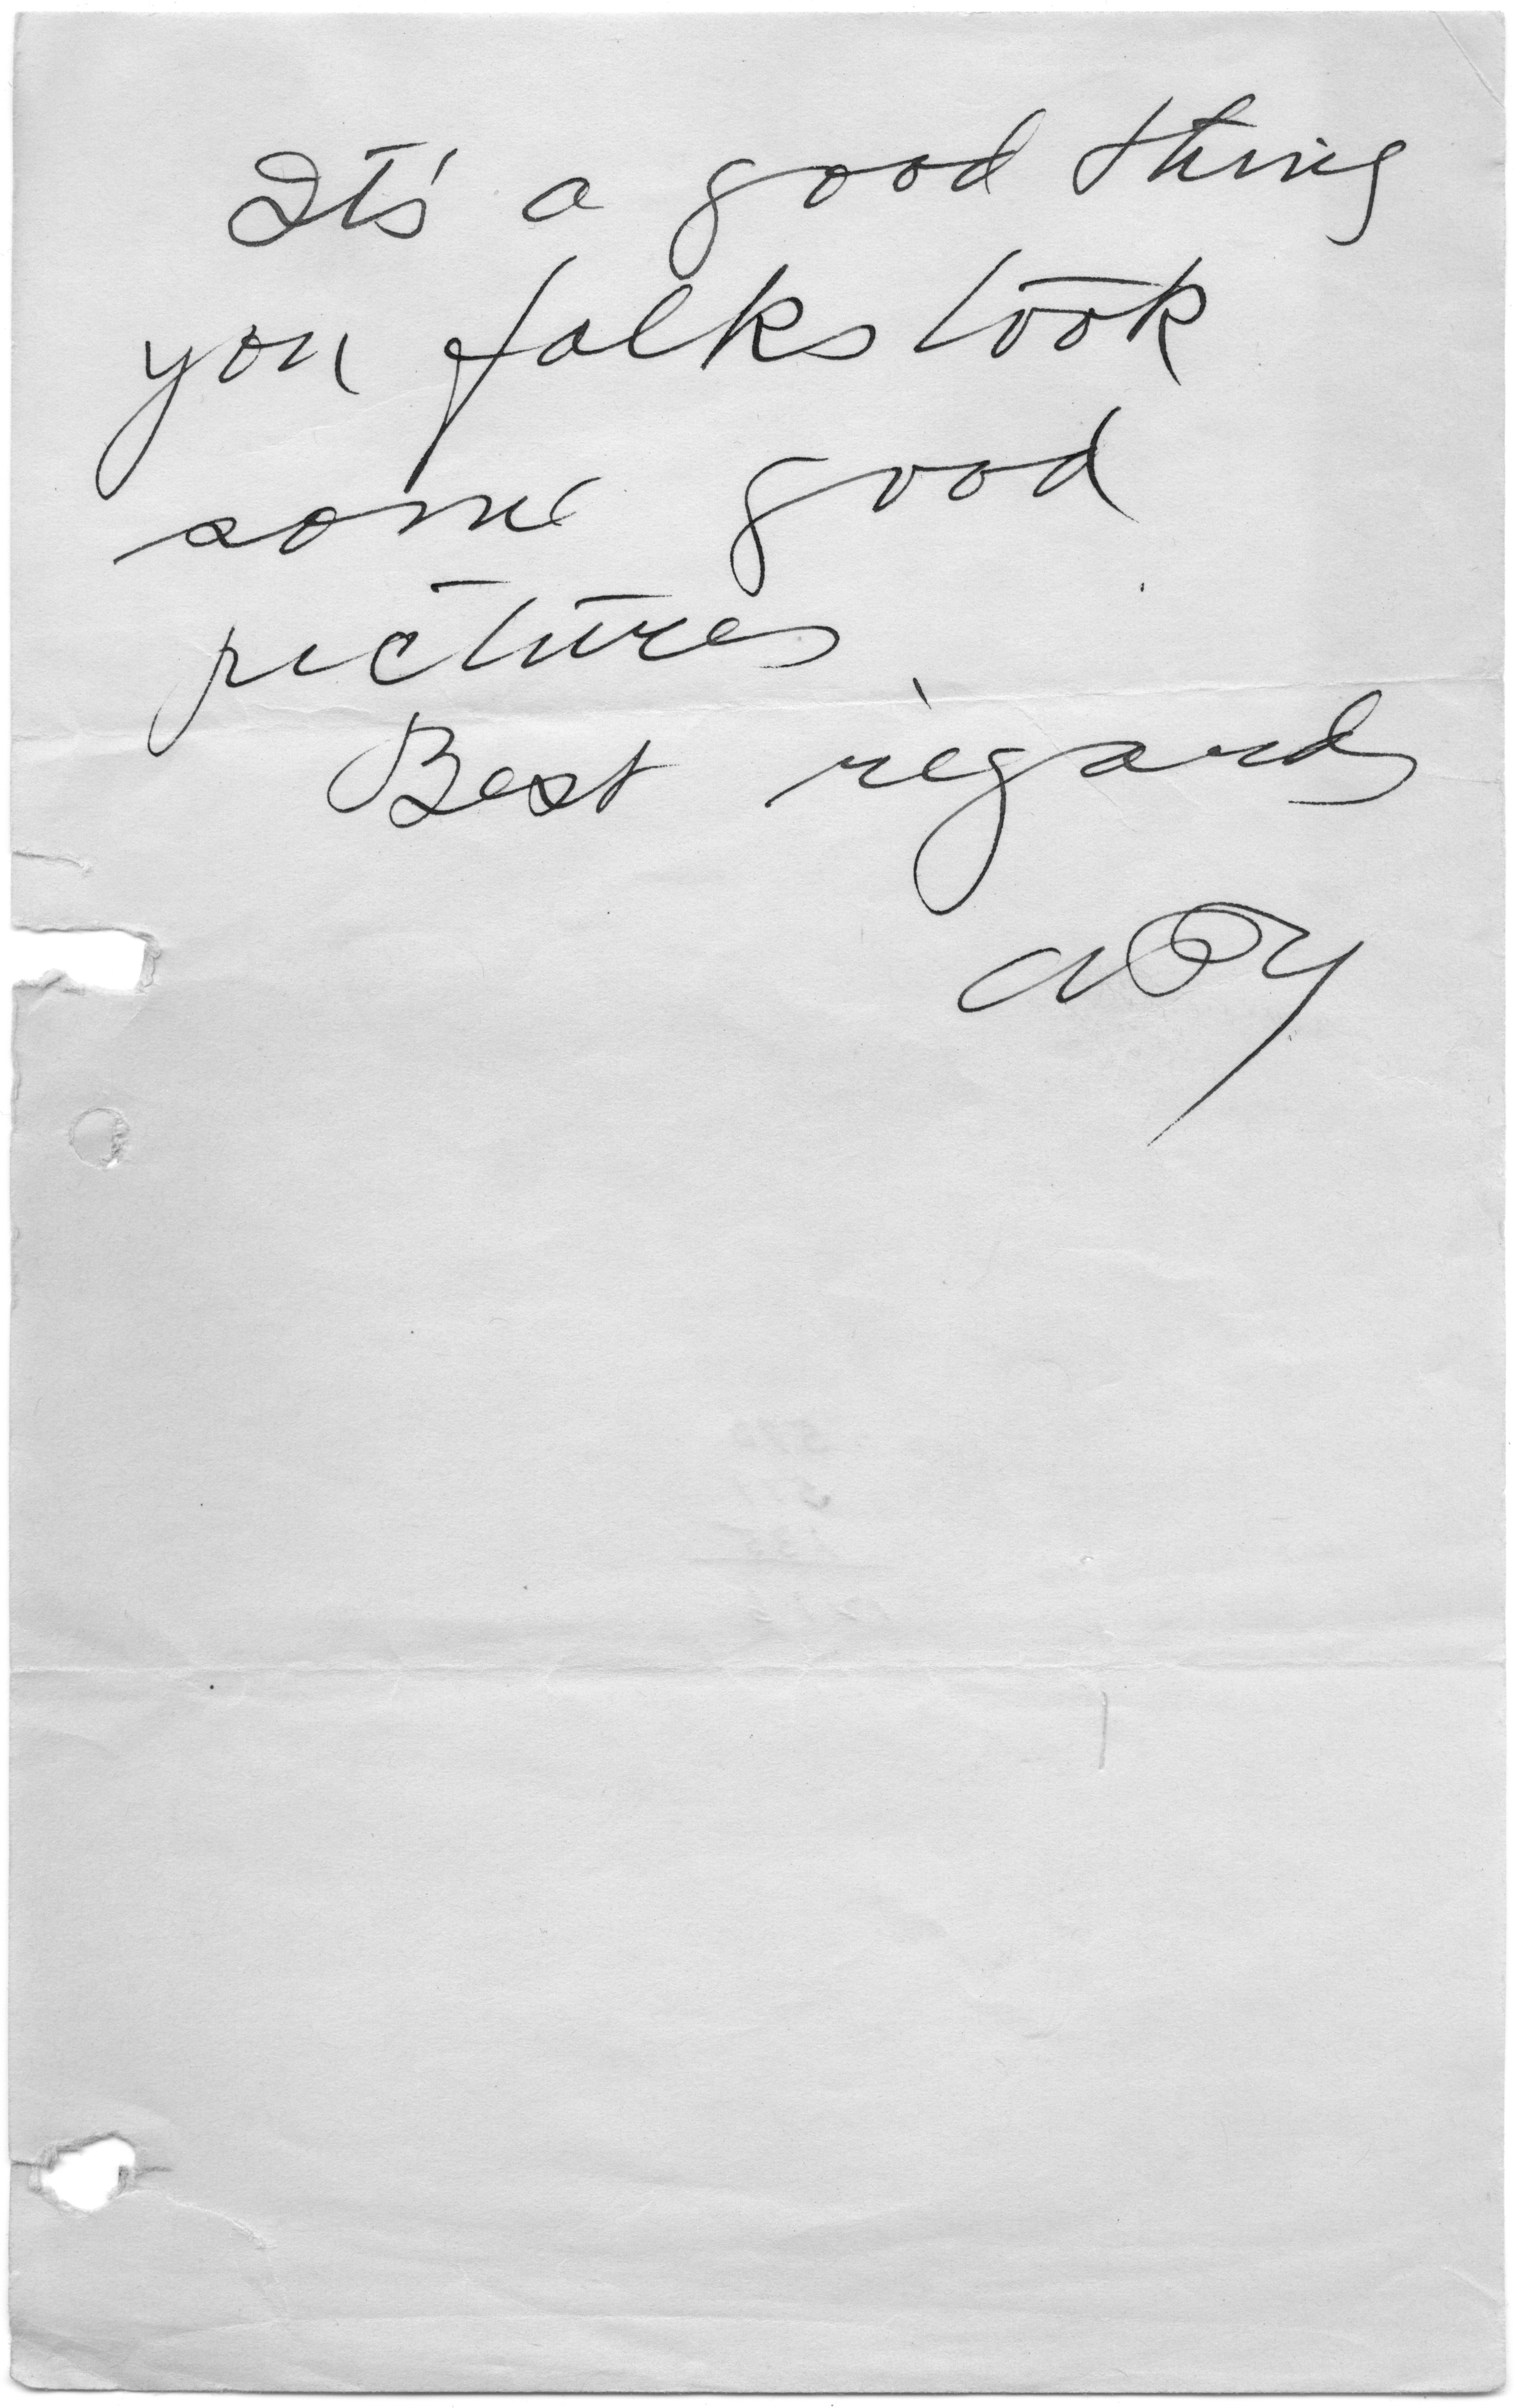 It's a good thing
you folks took
some good
pictures
Best regards